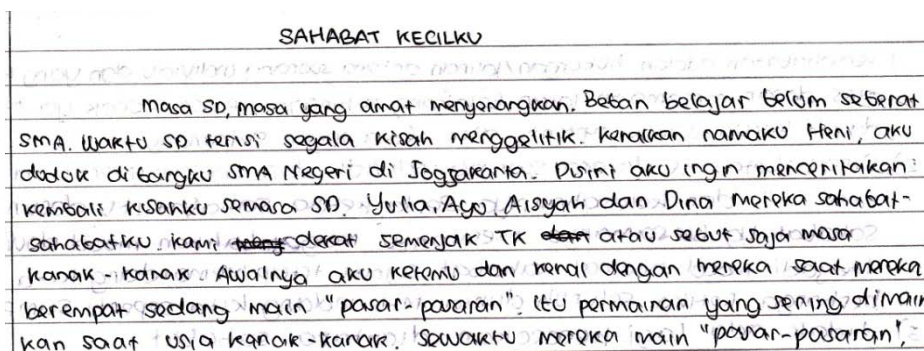 SAHABAT KECILKU
Masa SD, masa yang amat menyenangkan. Beban belajar belum seberat
SMA. Waktu SD terisi segala kisah menggelitik. Kenalkan namaku Heni, aku
duduk di bangku SMA Negeri di Jogjakarta. Disini aku ingin menceritakan
kembali kisahku semasa SD. Yulia, Ayu, Aisyah dan Dina mereka sahabat-
sahabatku. Kami dekat semenjak TK atau sebut saja masa
kanak-kanak. Awalnya aku ketemu dan kenal dengan mereka saat mereka
berempat sedang main "pasar-pasaran". Itu permainan yang sering dimain
kan saat usia kanak-kanak. Sewaktu mereka main "pasar-pasaran",